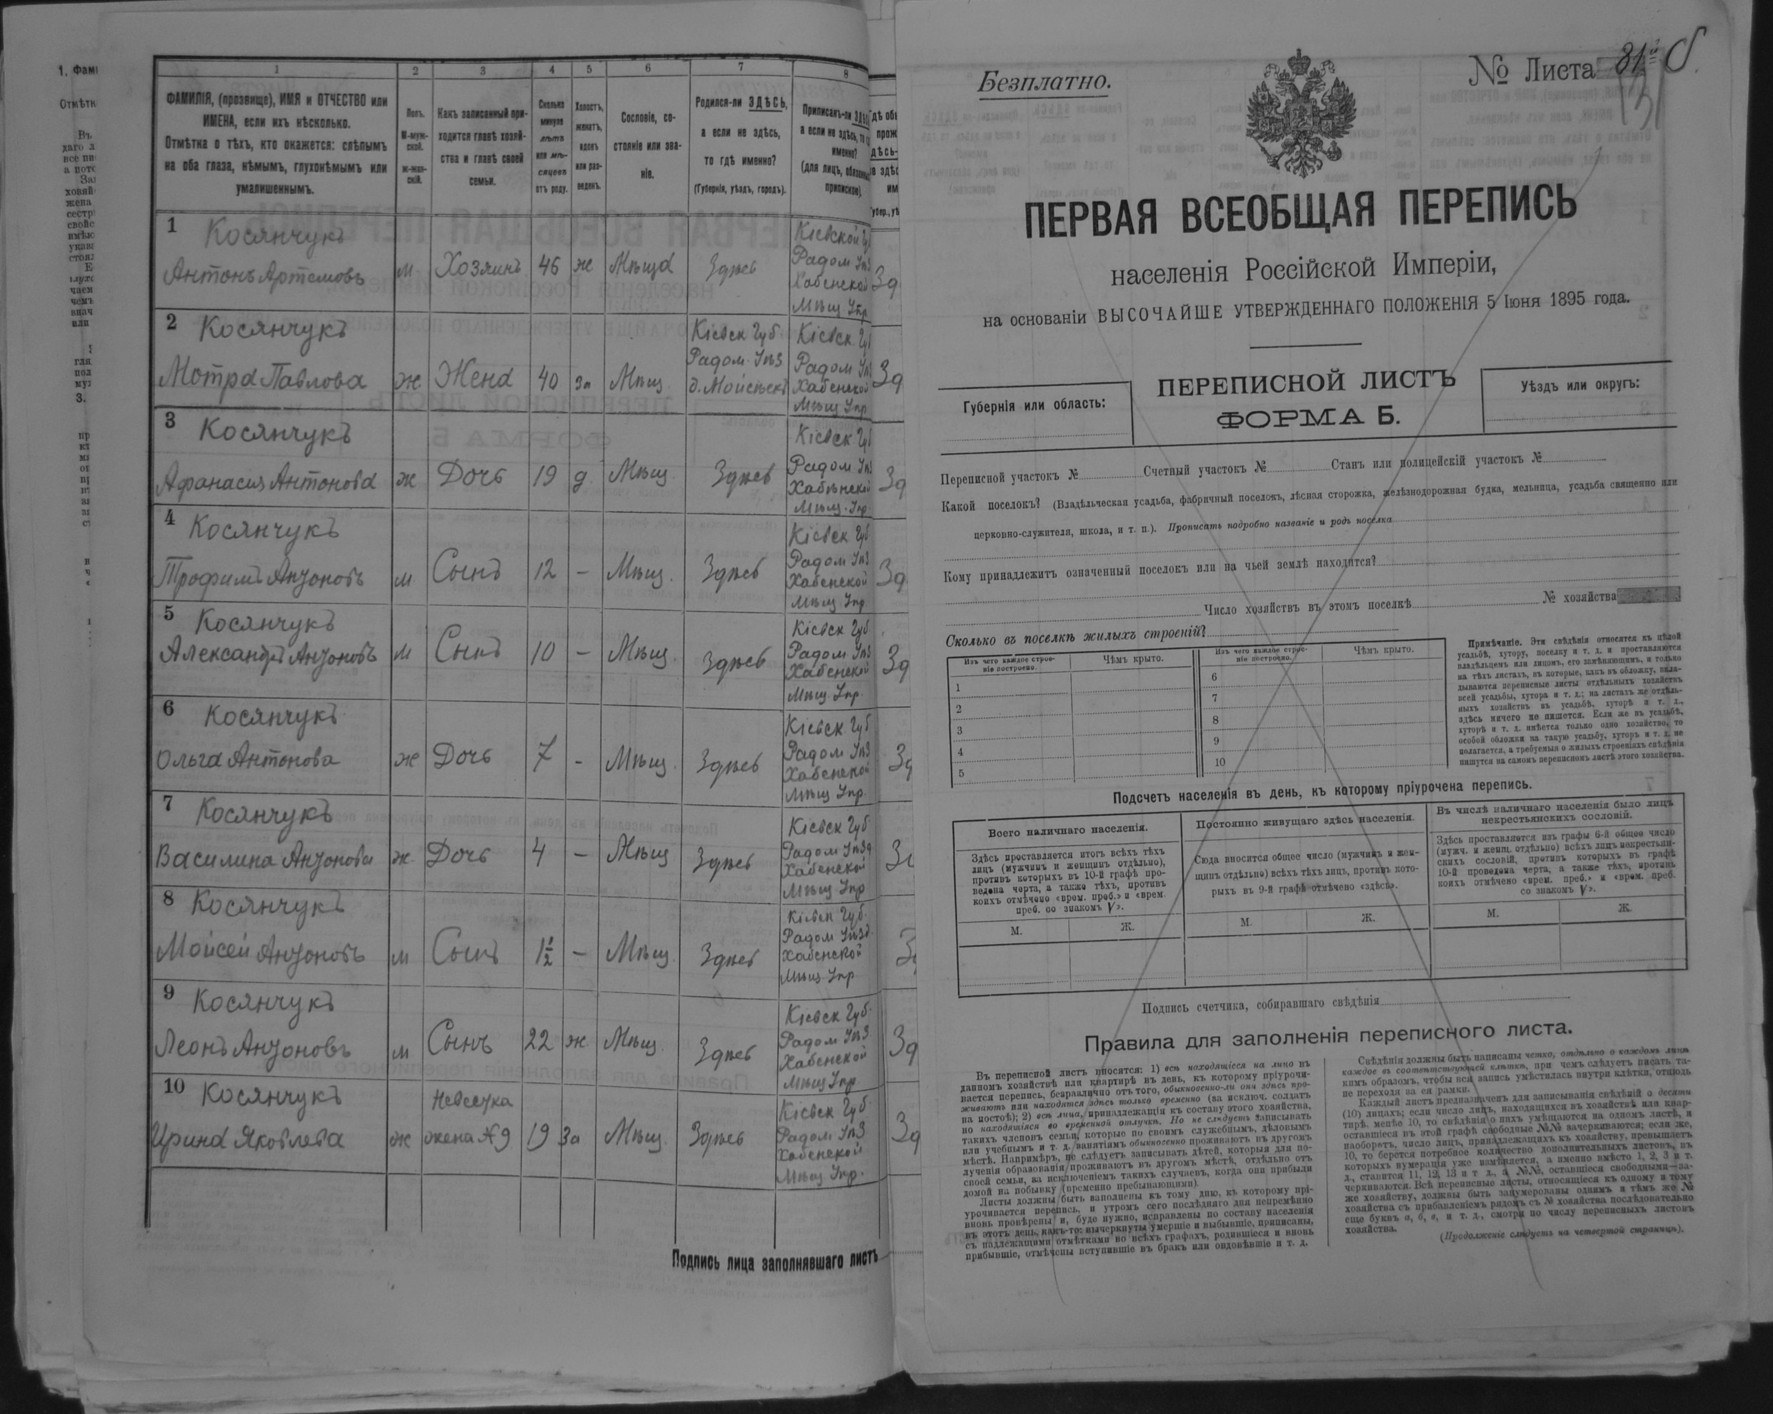 1
2
3
4
5
6
7
8
ФАМИЛІЯ, (прозвище), ИМЯ и ОТЧЕСТВО или
ИМЕНА, если ихъ нѣсколько.
Отмѣтка о тѣхъ, кто окажется: слѣпымъ
на оба глаза, нѣмымъ, глухонѣмымъ или
умалишеннымъ.
Полъ.
М-муж-
ской.
Ж-жен-
скій.
Какъ записанный при-
ходится главѣ хозяй-
ства и главѣ своей
семьи.
Сколько
минуло
лѣтъ
или мѣ-
сяцевъ
отъ роду.
Холостъ,
женатъ,
вдовъ
или раз-
веденъ.
Сословіе, со-
стояніе или зва-
ніе.
Родился-ли ЗДѢСЬ,
а если не здѣсь,
то гдѣ именно?
(Губернія, уѣздъ, городъ).
Приписанъ-ли
а если не здѣсь,
именно?
(для лицъ,
1 Косянчукъ
Антонъ Артемовъ м Хозяинъ 46 ж Мѣща Здѣсь
Кіевской
Радом
Хабенской
Мѣщ Упр
2 Косянчукъ
Мотра Павлова ж Жена 40 за Мѣщ.
Кіевск Губ
Радом
Кіевск
Радом
Хабенской
Мѣщ Упр
3 Косянчукъ
Антонова ж Дочь 19 д Мѣщ Здѣсь
Кіевск
Радом
Хабенской
Мѣщ. Упр.
4 Косянчукъ
Трофимъ Антоновъ м Сынъ 12 – Мѣщ. Здѣсь
Кіевск Губ
Радом
Хабенской
Мѣщ Упр
5 Косянчукъ
Антоновъ м Сынъ 10 – Мѣщ. Здѣсь
Кіевск Губ
Радом
Хабенской
Мѣщ Упр.
6 Косянчукъ
Ольга Антонова ж Дочь 7 - Мѣщ. Здѣсь
Кіевск Губ
Радом
Хабенской
Мѣщ Упр.
7 Косянчукъ
Василина Антонова ж Дочь 4 – Мѣщ Здѣсь
Кіевск Губ
Радом
Хабенской
Мѣщ Упр
8 Косянчукъ
Мойсей Антоновъ м Сынъ 1½ – Мѣщ Здѣсь
Кіевск Губ.
Радом
Хабенской
Мѣщ Упр
9 Косянчукъ
Леонъ Антоновъ м Сынъ 22 ж Мѣщ. Здѣсь
Кіевск Губ.
Радом
Хабенской
Мѣщ Упр
10 Косянчукъ
Невестка
Ирина Яковлева ж жена №9 19 За Мѣщ. Здѣсь
Кіевск Губ.
Радом
Хабенской
Мѣщ Упр.
Подпись лица заполнявшаго листъ
Безплатно.
№ Листа
ПЕРВАЯ ВСЕОБЩАЯ ПЕРЕПИСЬ
населенія Россійской Имперіи,
на основаніи ВЫСОЧАЙШЕ УТВЕРЖДЕННАГО ПОЛОЖЕНІЯ 5 Іюня 1895 года.
Губернія или область:
ПЕРЕПИСНОЙ ЛИСТЪ
ФОРМА Б.
Уѣздъ или округъ:
Переписной участокъ № Счетный участокъ № Станъ или полицейскій участокъ №
Какой поселокъ? (Владѣльческая усадьба, фабричный поселокъ, лѣсная сторожка, желѣзнодорожная будка, мельница, усадьба священно или
церковно-служителя, школа, и т. п.). Прописать подробно названіе и родъ поселка
Кому принадлежитъ означенный поселокъ или на чьей землѣ находится?
Число хозяйствъ въ этомъ поселкѣ № хозяйства
Сколько въ поселкѣ жилыхъ строеній?
Изъ чего каждое строе-
ніе построено.
Чѣмъ крыто.
Изъ чего каждое строе-
ніе построено.
Чѣмъ крыто.
1
2
3
4
5
6
7
8
9
10
Примѣчаніе. Эти свѣдѣнія относятся къ цѣлой
усадьбѣ, хутору, поселку и т. д. и проставляются
владѣльцемъ или лицомъ, его замѣняющимъ, и только
на тѣхъ листахъ, въ которые, какъ въ обложку, вкла-
дываются переписные листы отдѣльныхъ хозяйствъ
всей усадьбы, хутора и т. д.; на листахъ же отдѣль-
ныхъ хозяйствъ въ усадьбѣ, хуторѣ и т. д.,
здѣсь ничего не пишется. Если же въ усадьбѣ,
хуторѣ и т. д. имѣется только одно хозяйство, то
особой обложки на такую усадьбу, хуторъ и т. д. не
полагается, а требуемыя о жилыхъ строеніяхъ свѣдѣнія
пишутся на самомъ переписномъ листѣ этого хозяйства.
Подсчетъ населенія въ день, къ которому пріурочена перепись.
Всего наличнаго населенія.
Здѣсь проставляется итогъ всѣхъ тѣхъ
лицъ (мужчинъ и женщинъ отдѣльно),
противъ которыхъ въ 10-й графѣ про-
ведена черта, а также тѣхъ, противъ
коихъ отмѣчено «врем. преб.» и «врем.
преб. со знакомъ V».
М. Ж.
Постоянно живущаго здѣсь населенія.
Сюда вносится общее число (мужчинъ и жен-
щинъ отдѣльно) всѣхъ тѣхъ лицъ, противъ кото-
рыхъ въ 9-й графѣ отмѣчено «здѣсь».
М. Ж.
Въ числѣ наличнаго населенія было лицъ
некрестьянскихъ сословій.
Здѣсь проставляется изъ графы 6-й общее число
(мужч. и женщ. отдѣльно) всѣхъ лицъ некрестьян-
скихъ сословій, противъ которыхъ въ графѣ
10-й проведена черта, а также тѣхъ, противъ
коихъ отмѣчено «врем. преб.» и «врем. преб.
со знакомъ V».
М. Ж.
Подпись счетчика, собиравшаго свѣдѣнія
Правила для заполненія переписного листа.
Въ переписной листъ вносятся: 1) всѣ находящіеся на лицо въ
данномъ хозяйствѣ или квартирѣ въ день, къ которому пріурочи-
вается перепись, безразлично отъ того, обыкновенно-ли они здѣсь про-
живаютъ или находятся здѣсь только временно (за исключ. солдатъ
на постоѣ); 2) всѣ лица, принадлежащія къ составу этого хозяйства,
но находящіяся во временной отлучкѣ. Но не слѣдуетъ записывать
такихъ членовъ семьи, которые по своимъ служебнымъ, дѣловымъ
или учебнымъ и т. д. занятіямъ обыкновенно проживаютъ въ другомъ
мѣстѣ. Напримѣръ, не слѣдуетъ записывать дѣтей, которыя для по-
лученія образованія проживаютъ въ другомъ мѣстѣ, отдѣльно отъ
своей семьи, за исключеніемъ такихъ случаевъ, когда они прибыли
домой на побывку (временно пребывающими).
Листы должны быть заполнены къ тому дню, къ которому прі-
урочивается перепись, и утромъ сего послѣдняго дня непремѣнно
вновь провѣрены и, буде нужно, исправлены по составу населенія
въ этотъ день, какъ-то: вычеркнуты умершіе и выбывшіе, приписаны,
съ надлежащими отмѣтками во всѣхъ графахъ, родившіеся и вновь
прибывшіе, отмѣчены вступившіе въ бракъ или овдовѣвшіе и т. д.
Свѣдѣнія должны быть написаны четко, отдѣльно о каждомъ лицѣ
каждое въ соотвѣтствующей клѣткѣ, при чемъ слѣдуетъ писать та-
кимъ образомъ, чтобы вся запись умѣстилась внутри клѣтки, отнюдь
не переходя за ея рамки.
Каждый листъ предназначенъ для записыванія свѣдѣній о десяти
(10) лицахъ; если число лицъ, находящихся въ хозяйствѣ или квар-
тирѣ, менѣе 10, то свѣдѣнія о нихъ умѣщаются на одномъ листѣ, и
оставшіеся въ этой графѣ свободные №№ зачеркиваются; если же,
наоборотъ, число лицъ, принадлежащихъ къ хозяйству, превышаетъ
10, то берется потребное количество дополнительныхъ листовъ, въ
которыхъ нумерація уже измѣняется, а именно вмѣсто 1, 2, 3 и т.
д., ставится 11, 12, 13 и т. д., а №№, оставшіеся свободными—за-
черкиваются. Всѣ переписные листы, относящіеся къ одному и тому
же хозяйству, должны быть занумерованы однимъ и тѣмъ же №
хозяйства съ прибавленіемъ рядомъ съ № хозяйства послѣдовательно
еще буквъ а, б, в, и т. д., смотря по числу переписныхъ листовъ
хозяйства.
(Продолженіе слѣдуетъ на четвертой страницѣ).